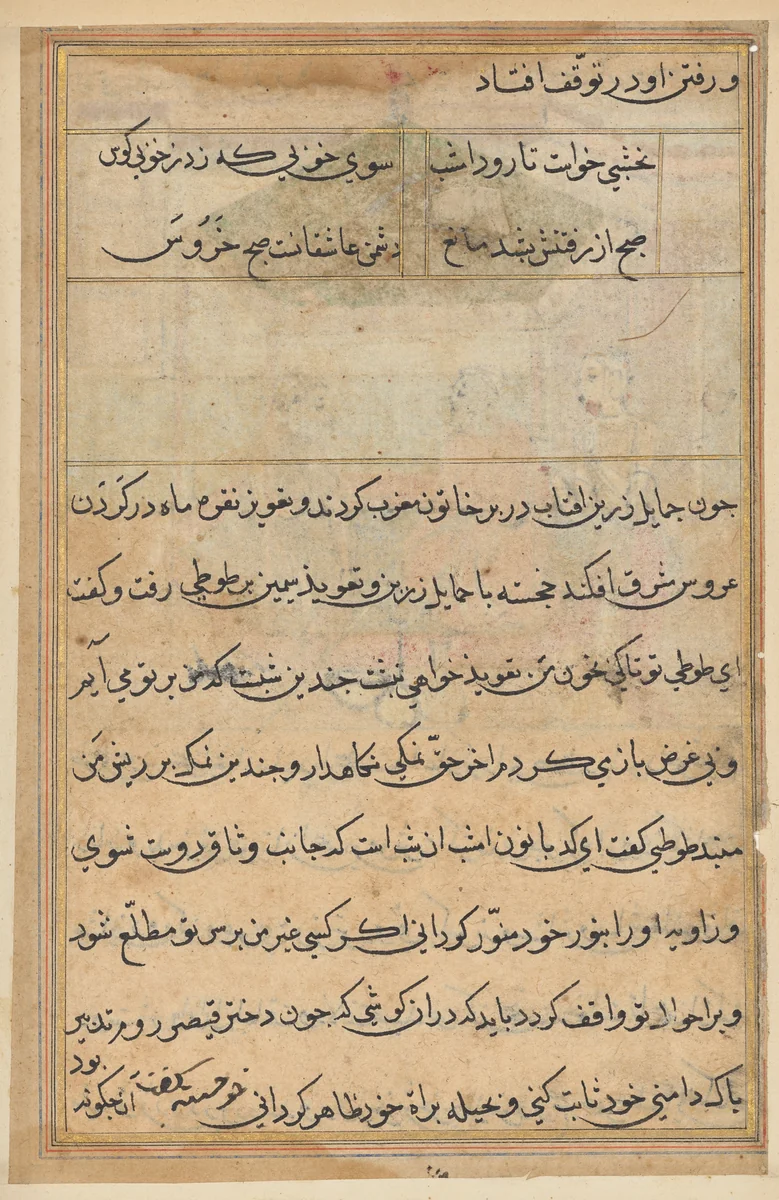 و رفتن او در توقّف افتاد
نخشبي خواست تا رود امشب سوي خوبي كه زد ز خوبي كوس
صبح از رفتنش بشد مانع دشمن عاشقانست صبح خَرُوسَ
جون حمايل زرين افتاب در بر خاتون مغرب كردند و تعويذ نقره ماه در كَردَن
عروس شرق افكند خجسته با حمايل زرين و تعويذ سيمين بر طوطي رفت و كفت
اي طوطي تو تا كي بخون من تعويذ خواهي نبشت جندين شبست كه من بر تو مي آيم
و بي غرض بازي كردم اخر حقّ نمكي نكاهدار و جندين نمك بر ريش مَن
مبند طوطي كفت اي كدبانون امشب ان شب است كه جانب وثاق دوست شوي
و زاويه او را بنور خود منوّر كرداني اكر كسي غير من بر سر تو مطلّع شود
و بر احوال تو واقف كردد بايد كه دران كوشي كه جون دختر قيصر روم تدبير
پاك دامني خود ثابت كني و بحيله براة خود ظاهر كرداني خجسته كفت ان جكونه
بود